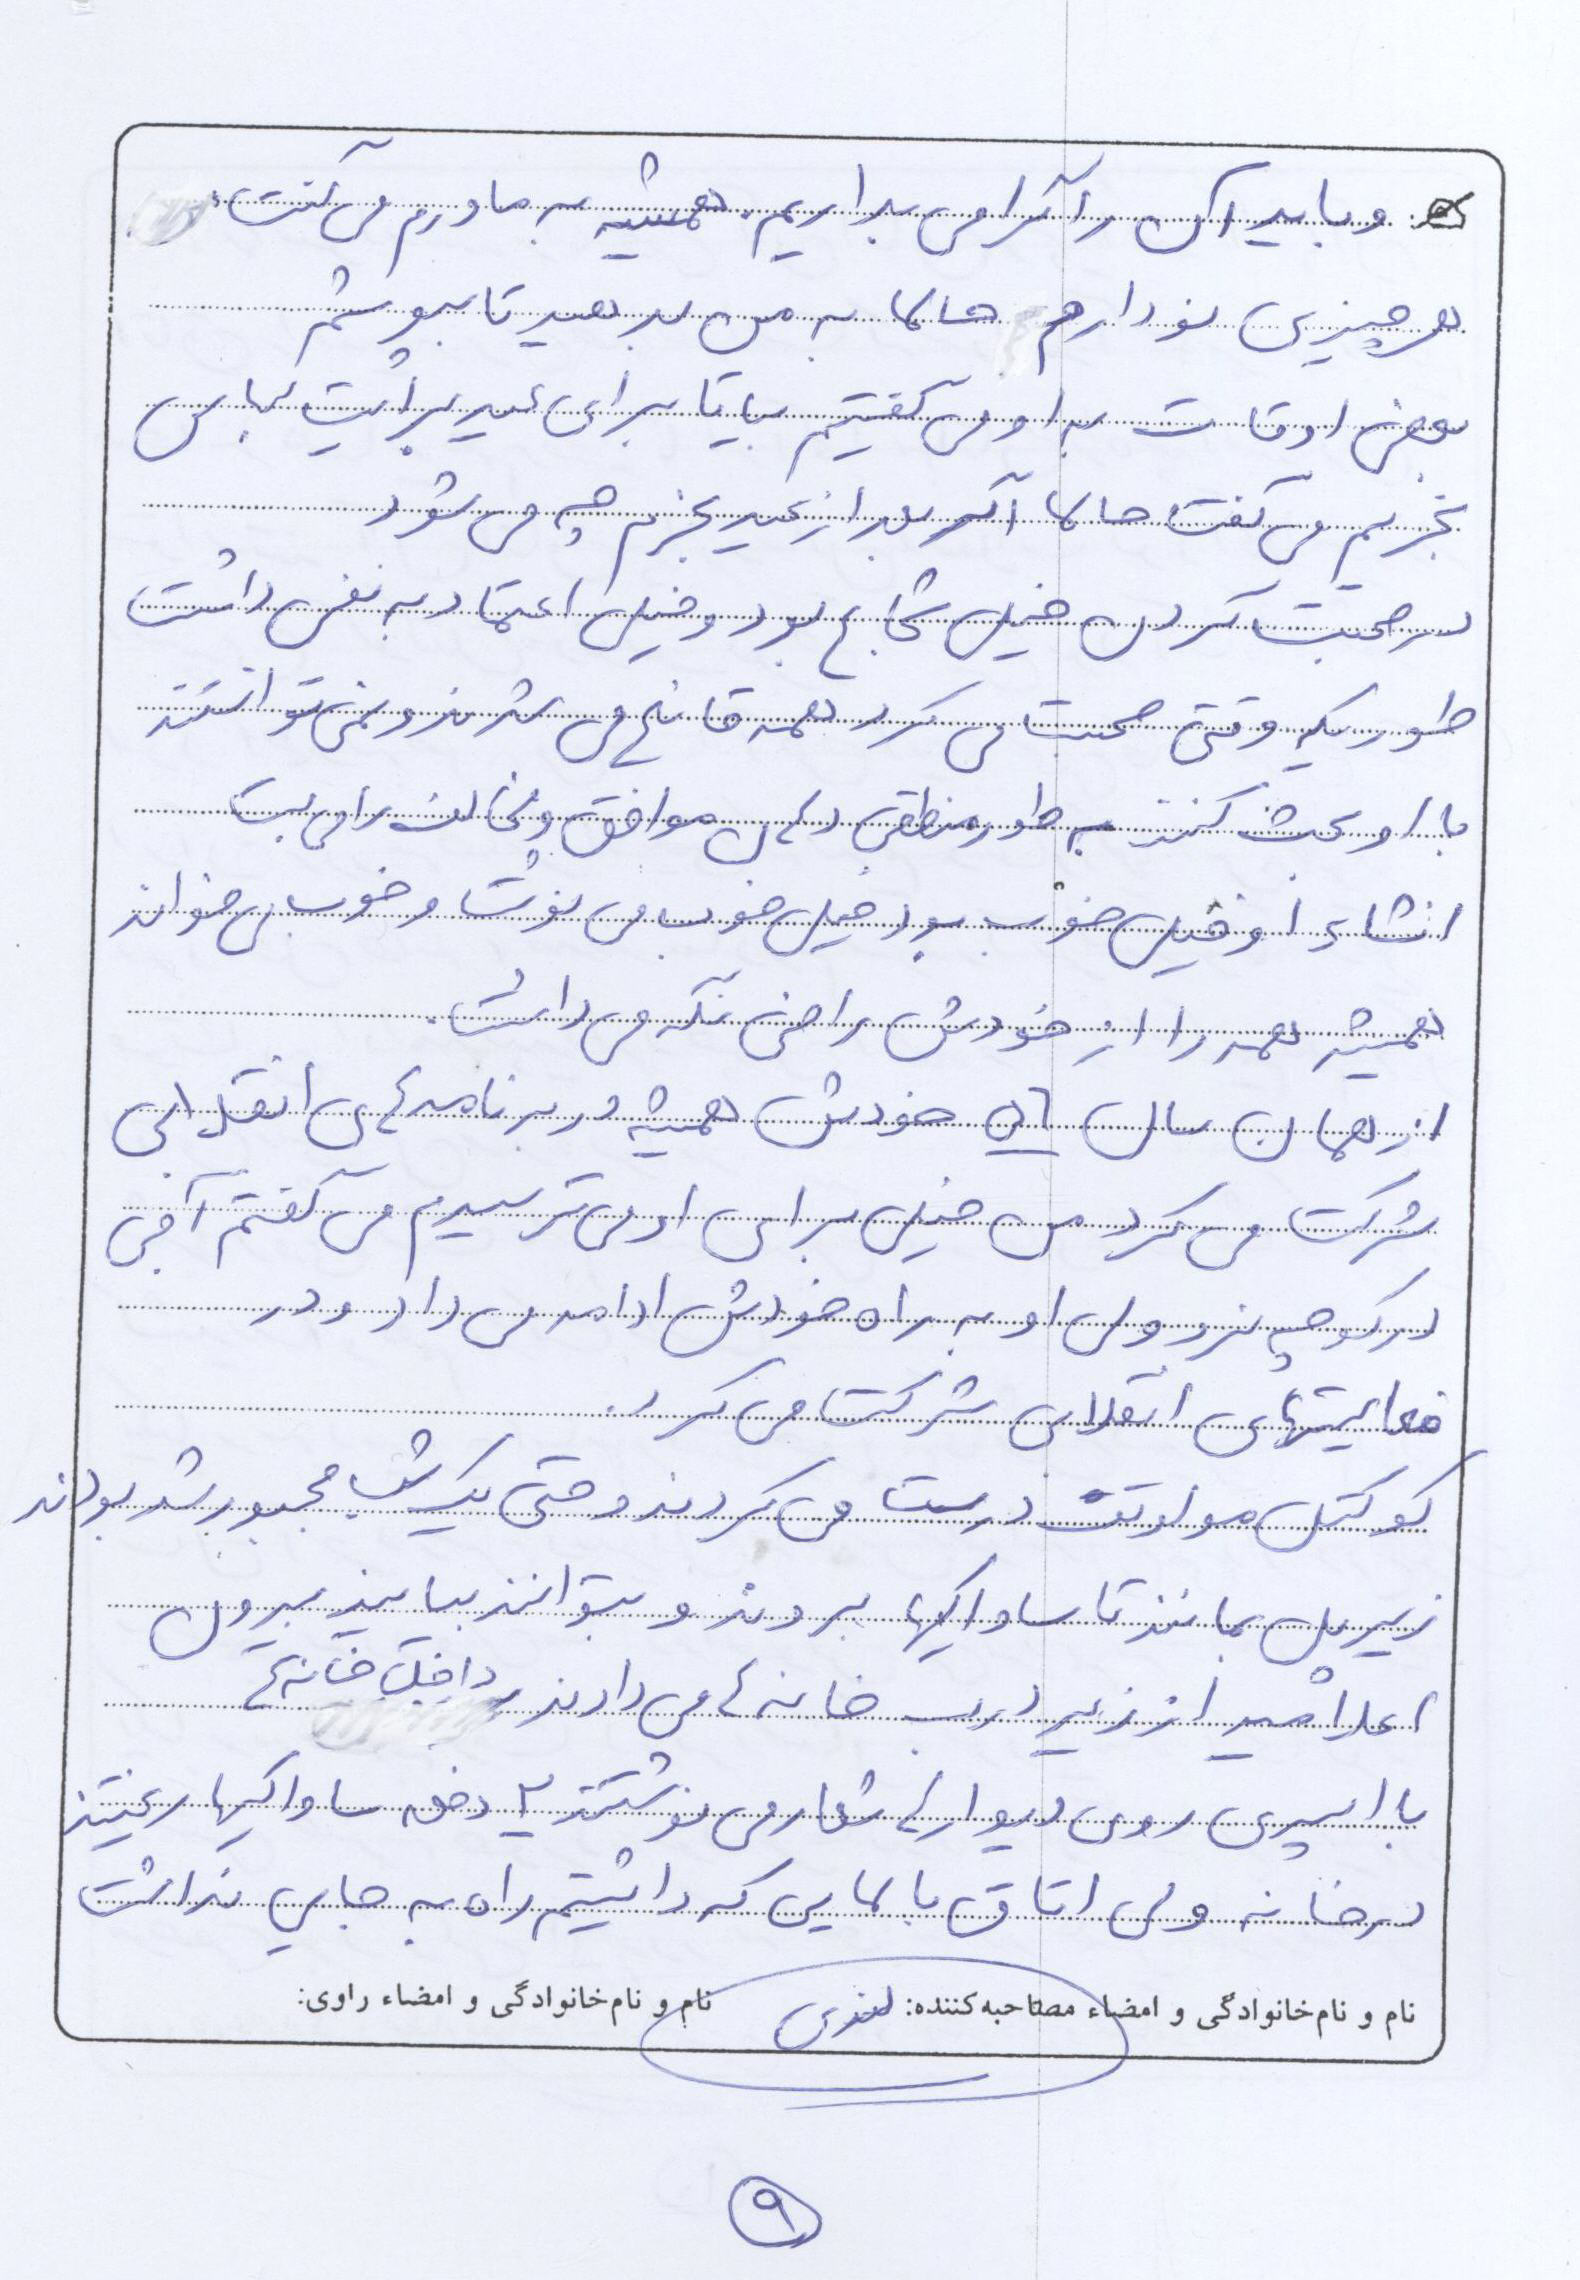 و باید آن را گرامی بداریم. همیشه به مادرم می گفت:
هر چیزی نو دارم حالا به من بدهید تا بپوشم
بعضی اوقات به او می گفتیم بیا تا برای عید برایت لباس
بخریم می گفت حالا اگر بعد از عید بخرم چه می شود
در صحبت کردن خیلی شجاع بود و خیلی اعتماد به نفس داشت
طوریکه وقتی صحبت می کرد همه قانع می شدند و نمی توانستند
با او بحث کنند به طور منطقی دهان موافق و مخالف را می بست
انشاء او خیلی خوب بود خیلی خوب می نوشت و خوب می خواند
همیشه همه را از خودش راضی نگه می داشت.
از همان سال ۵۶ خودش همیشه در برنامه های انقلابی
شرکت می کرد من خیلی برای او می ترسیدم می گفتم آجی
در کوچه نرو ولی او به راه خودش ادامه می داد و در
فعالیتهای انقلابی شرکت می کرد.
کوکتل مولوتف درست می کردند و حتی یک شب مجبور شد بودند
زیر پل بمانند تا ساواکیها بروند و بتوانند بیایند بیرون
اعلامیه از زیر درب خانه ها می دادند داخل خانه ها
با اسپری روی دیوارها شعار می نوشتند ۲ دفعه ساواکیها ریختند
در خانه ولی اتاق بالایی که داشتیم راه به جایی نداشت
نام و نام خانوادگی و امضاء مصاحبه کننده: نام و نام خانوادگی و امضاء راوی:
۹